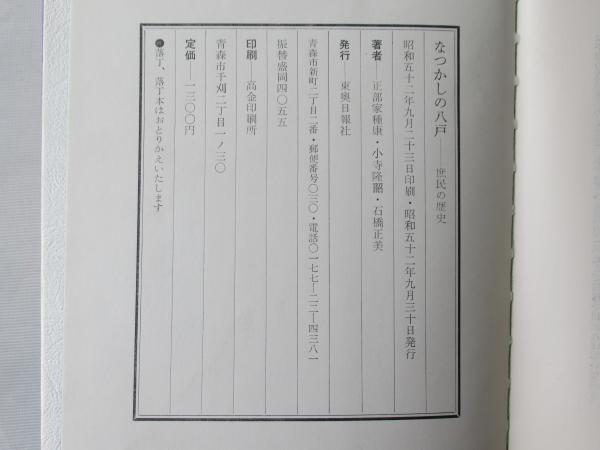 なつかしの八戸――庶民の歴史
昭和五十二年九月二十三日印刷・昭和五十二年九月三十日発行
著者――正部家種康・小寺隆韶・石橋正美
発行――東奥日報社
青森市新町二丁目二番・郵便番号〇三〇・電話〇一七七―二二―四三八一
振替盛岡四〇五五
印刷――高金印刷所
青森市千刈二丁目一ノ三〇
定価――一三〇〇円
●落丁、落丁本はおとりかえいたします